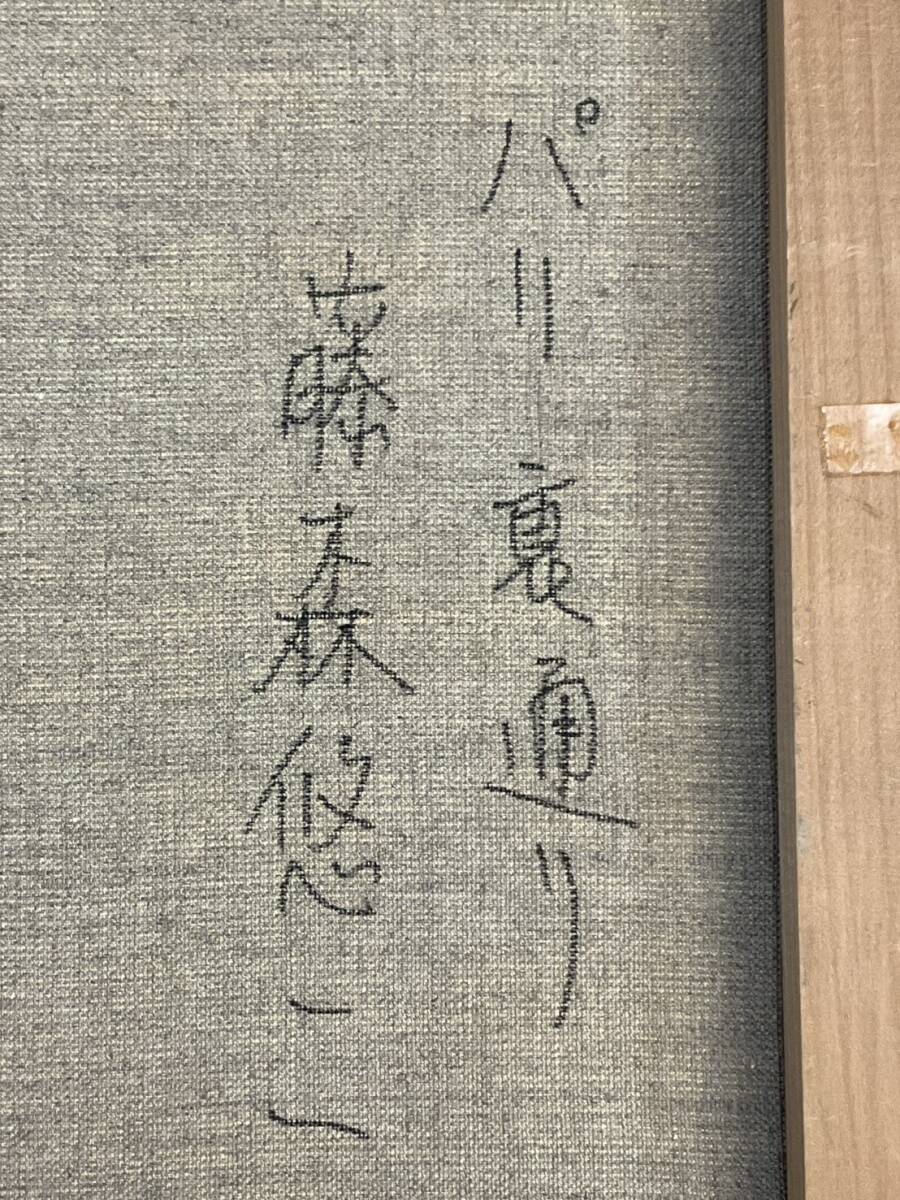 パリ裏通り
藤森悠二